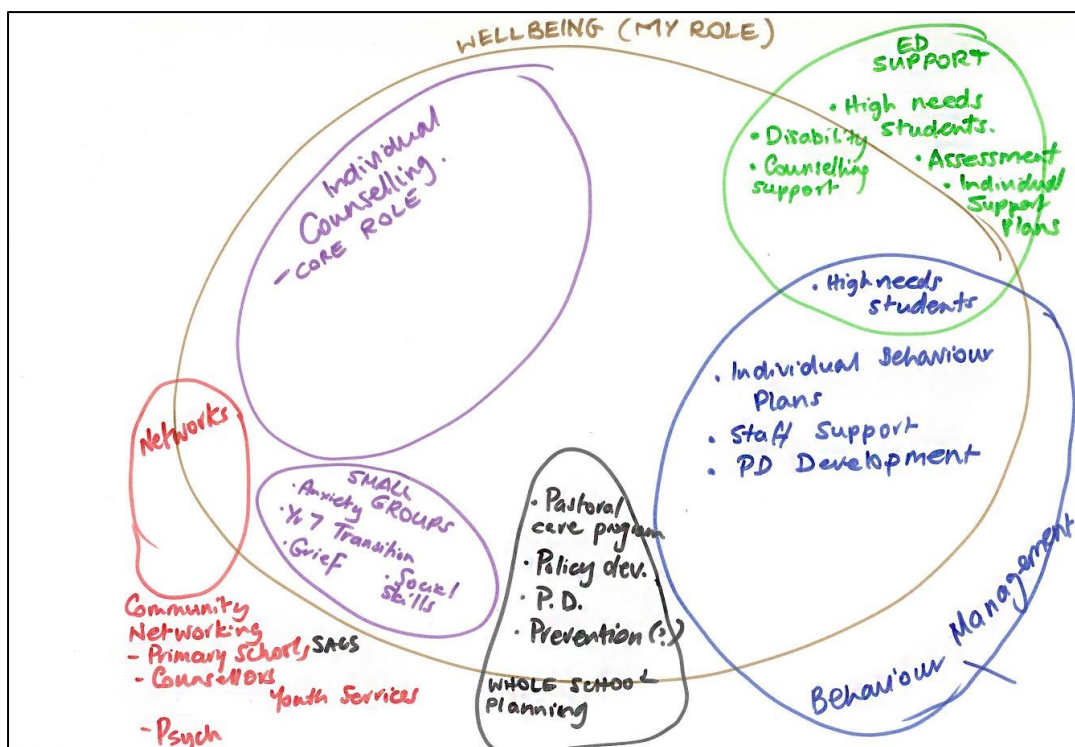 WELLBEING (MY ROLE)
ED
SUPPORT
• High needs
students.
• Disability
• Counselling
support
• Assessment
• Individual
Support
Plans
Individual
Counselling.
- CORE ROLE
• High needs
students
• Individual Behaviour
Plans
• Staff Support
• PD Development
Behaviour Management
Networks
SMALL
GROUPS
• Anxiety
• Yr 7 Transition
• Grief
• Social
skills
• Pastoral
care program
• Policy dev.
• P.D.
• Prevention (?)
WHOLE SCHOOL
Planning
Community
Networking
- Primary Schools, SACS
- Counsellors
Youth Services
- Psych